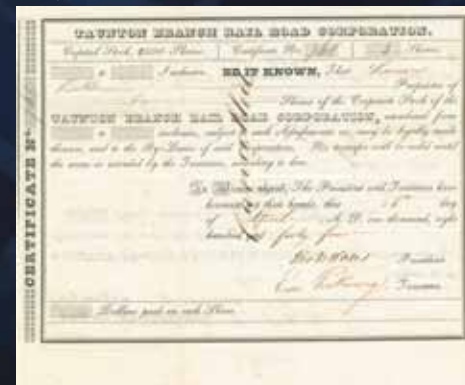 TAUNTON BRANCH RAIL ROAD CORPORATION.
Capital Stock, 2500 Shares Certificate No. Shares
to inclusive. BE IT KNOWN, That
Proprietor of
Shares of the Corporate Stock of the
TAUNTON BRANCH RAIL ROAD CORPORATION, numbered from
to inclusive, subject to such Assessments as may be legally made
thereon, and to the By-Laws of said Corporation. No transfer will be valid until
the same is recorded by the Treasurer, according to law.
In Witness whereof, The President and Treasurer have
hereunto set their hands, this 6th day
of April A. D. one thousand, eight
hundred and forty four
President
Treasurer
Dollars paid on each Share.
CERTIFICATE No.